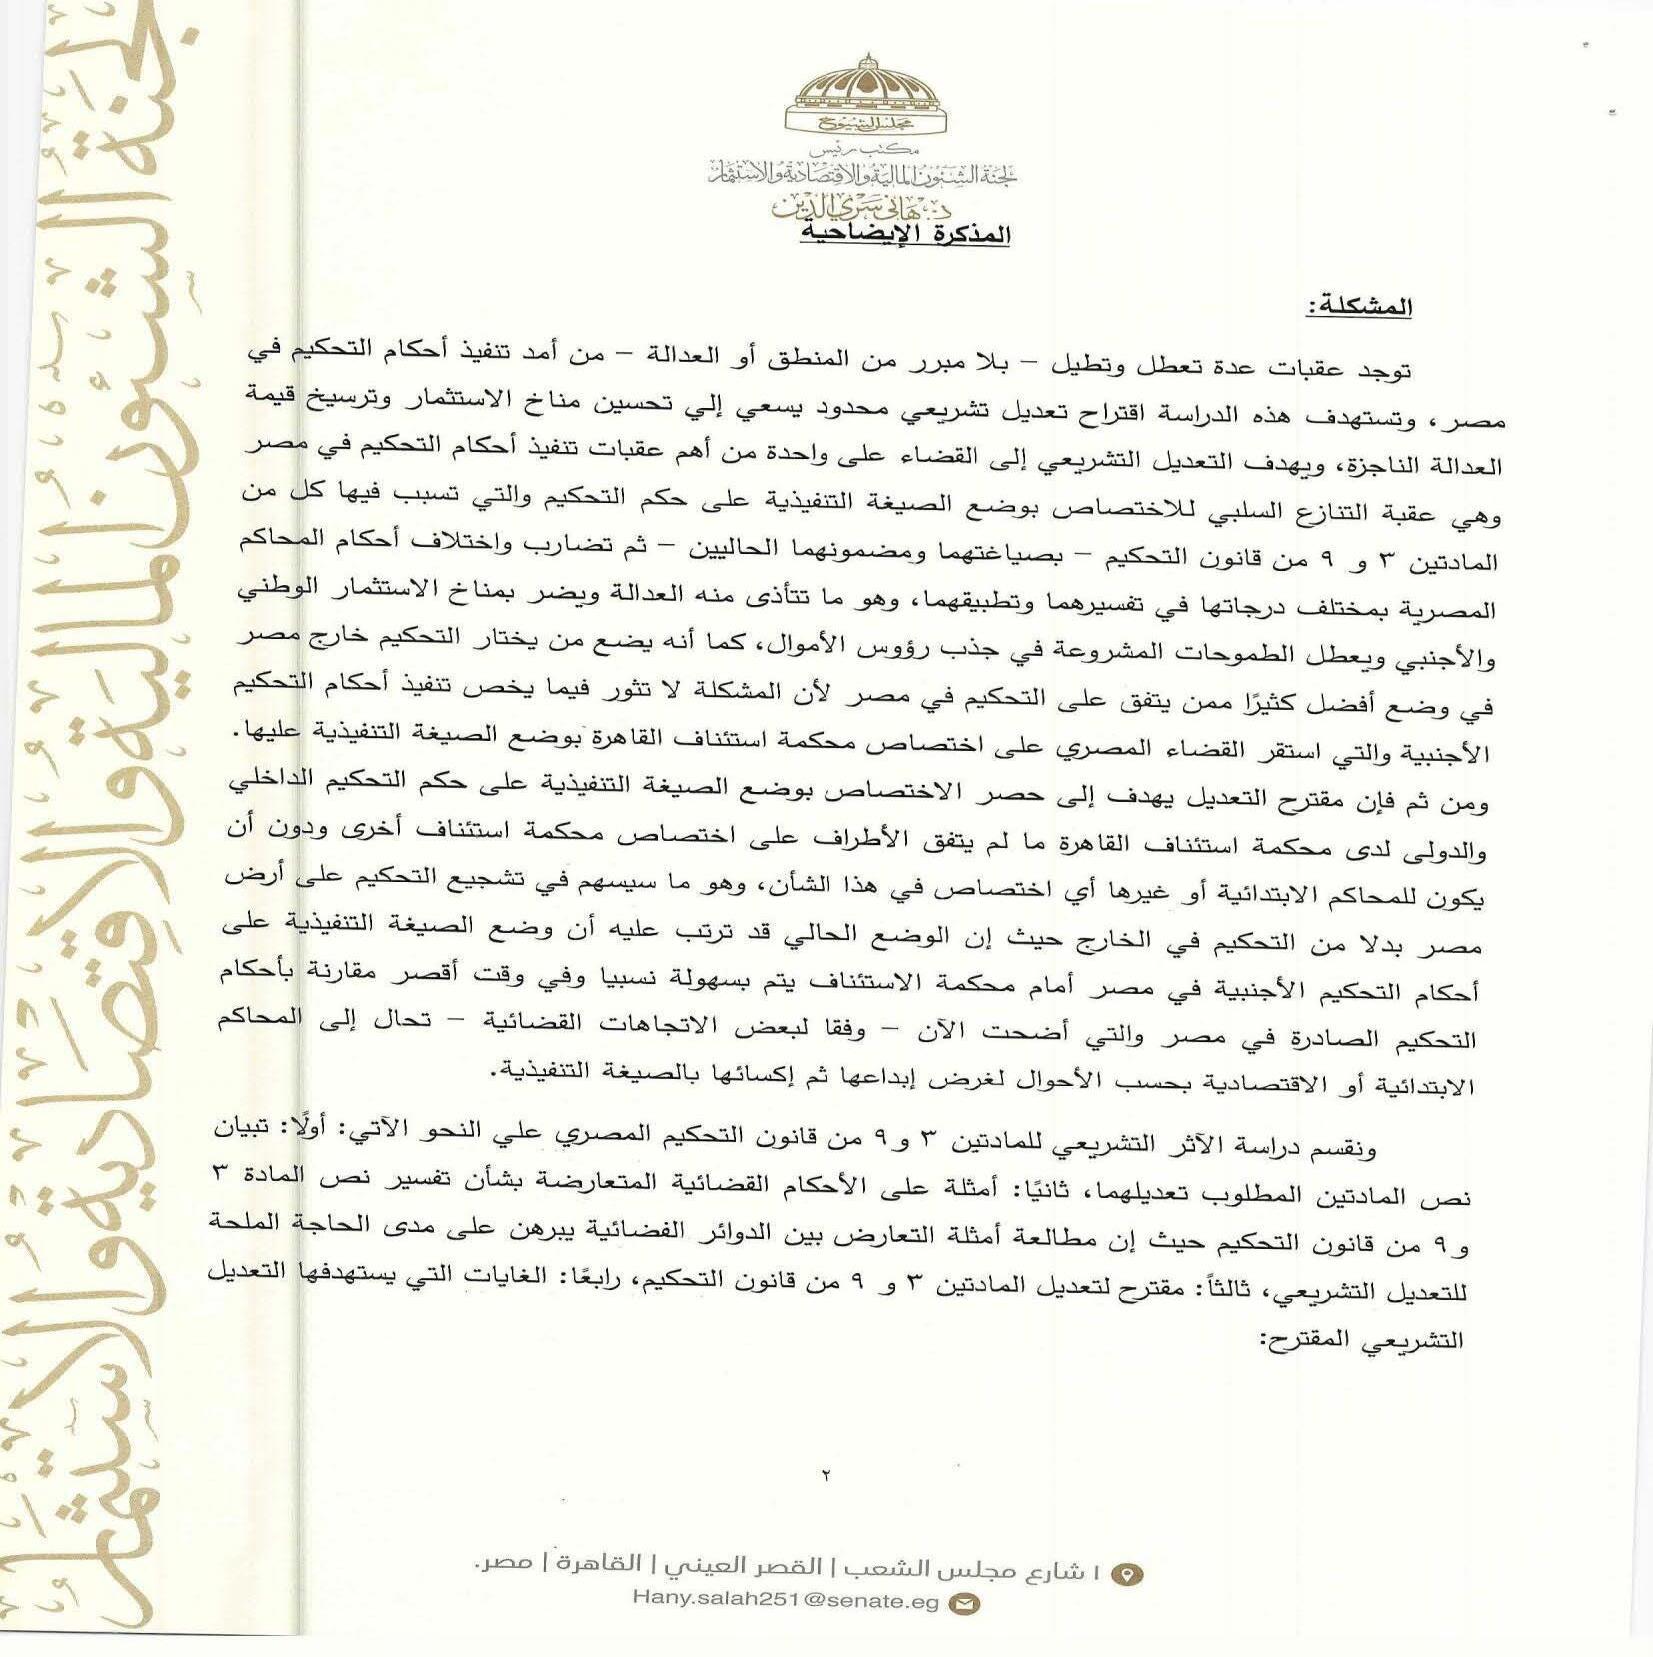 مجلس الشيوخ
مكتب رئيس
لجنة الشئون المالية والاقتصادية والاستثمار
د. هاني سري الدين
المذكرة الإيضاحية
المشكلة:
توجد عقبات عدة تعطل وتطيل – بلا مبرر من المنطق أو العدالة – من أمد تنفيذ أحكام التحكيم في
مصر، وتستهدف هذه الدراسة اقتراح تعديل تشريعي محدود يسعي إلي تحسين مناخ الاستثمار وترسيخ قيمة
العدالة الناجزة، ويهدف التعديل التشريعي إلى القضاء على واحدة من أهم عقبات تنفيذ أحكام التحكيم في مصر
وهي عقبة التنازع السلبي للاختصاص بوضع الصيغة التنفيذية على حكم التحكيم والتي تسبب فيها كل من
المادتين ٣ و ٩ من قانون التحكيم – بصياغتهما ومضمونهما الحاليين – ثم تضارب واختلاف أحكام المحاكم
المصرية بمختلف درجاتها في تفسيرهما وتطبيقهما، وهو ما تتأذى منه العدالة ويضر بمناخ الاستثمار الوطني
والأجنبي ويعطل الطموحات المشروعة في جذب رؤوس الأموال، كما أنه يضع من يختار التحكيم خارج مصر
في وضع أفضل كثيرًا ممن يتفق على التحكيم في مصر لأن المشكلة لا تثور فيما يخص تنفيذ أحكام التحكيم
الأجنبية والتي استقر القضاء المصري على اختصاص محكمة استئناف القاهرة بوضع الصيغة التنفيذية عليها.
ومن ثم فإن مقترح التعديل يهدف إلى حصر الاختصاص بوضع الصيغة التنفيذية على حكم التحكيم الداخلي
والدولى لدى محكمة استئناف القاهرة ما لم يتفق الأطراف على اختصاص محكمة استئناف أخرى ودون أن
يكون للمحاكم الابتدائية أو غيرها أي اختصاص في هذا الشأن، وهو ما سيسهم في تشجيع التحكيم على أرض
مصر بدلا من التحكيم في الخارج حيث إن الوضع الحالي قد ترتب عليه أن وضع الصيغة التنفيذية على
أحكام التحكيم الأجنبية في مصر أمام محكمة الاستئناف يتم بسهولة نسبيا وفي وقت أقصر مقارنة بأحكام
التحكيم الصادرة في مصر والتي أضحت الآن – وفقا لبعض الاتجاهات القضائية – تحال إلى المحاكم
الابتدائية أو الاقتصادية بحسب الأحوال لغرض إيداعها ثم إكسائها بالصيغة التنفيذية.
ونقسم دراسة الآثر التشريعي للمادتين ٣ و ٩ من قانون التحكيم المصري علي النحو الآتي: أولًا: تبيان
نص المادتين المطلوب تعديلهما، ثانيًا: أمثلة على الأحكام القضائية المتعارضة بشأن تفسير نص المادة ٣
و ٩ من قانون التحكيم حيث إن مطالعة أمثلة التعارض بين الدوائر الفضائية يبرهن على مدى الحاجة الملحة
للتعديل التشريعي، ثالثاً: مقترح لتعديل المادتين ٣ و ٩ من قانون التحكيم، رابعًا: الغايات التي يستهدفها التعديل
التشريعي المقترح:
٢
١ شارع مجلس الشعب | القصر العيني | القاهرة | مصر.
Hany.salah251@senate.eg
لجنة الشئون المالية والاقتصادية والاستثمار